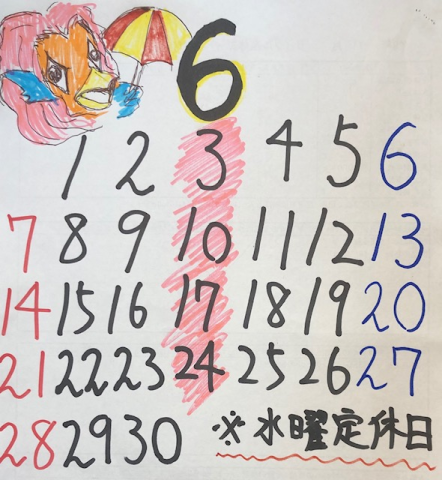 6
1 2 3 4 5 6
7 8 9 10 11 12 13
14 15 16 17 18 19 20
21 22 23 24 25 26 27
28 29 30 ※水曜定休日